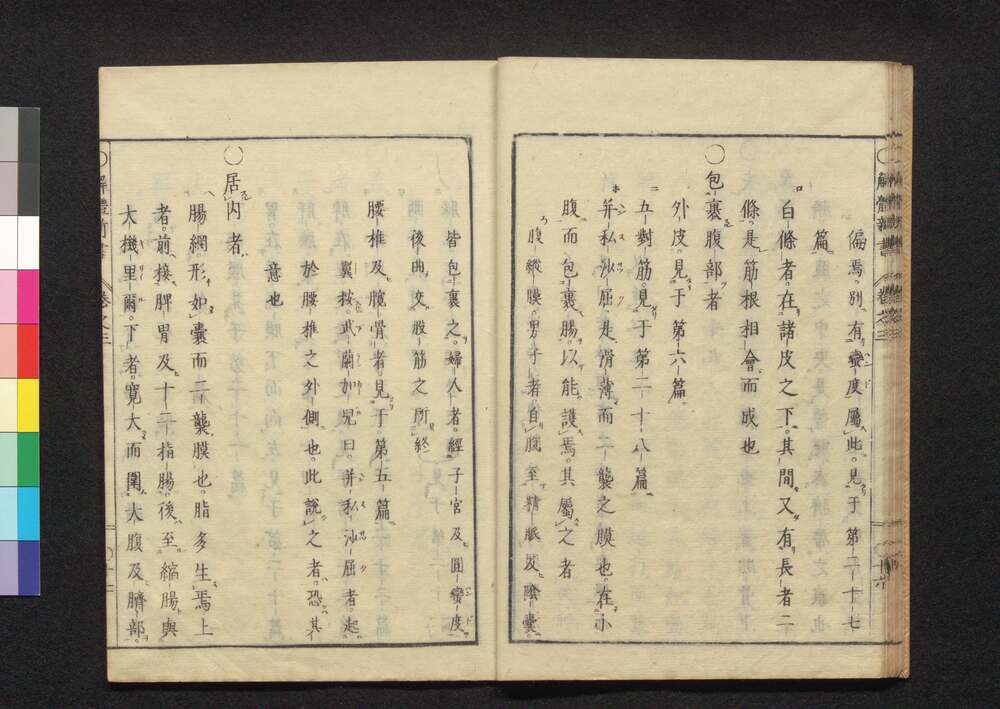 偏焉。別有蠻度屬此。見于第二十七
篇
白條者。在諸皮之下。其間又有長者二
條。是筋根相會而成也
〇包裹腹部者
外皮。見于第六篇
五對筋。見于第二十八篇
并私汕屈。是滑薄而二襲之膜也。在小
腹而包裹腸。以能護焉。其屬之者
腹縱膜。男子者。自腹至精脈及陰囊。
皆包裹之。婦人者。經子宮及圓蠻度。
後曲。交股筋之所終
腰椎及臗骨者。見于第五篇
翼按。武蘭加兒曰。并私汕屈者起
於腰椎之外側也。此說之者。恐其
意也
〇居内者
腸網。形如囊而二襲膜也。脂多生焉。上
者。前接脾胃及十二指腸。後至縮腸與
大機里爾。下者。寬大而圍大腹及臍部。
解體新書
卷之三